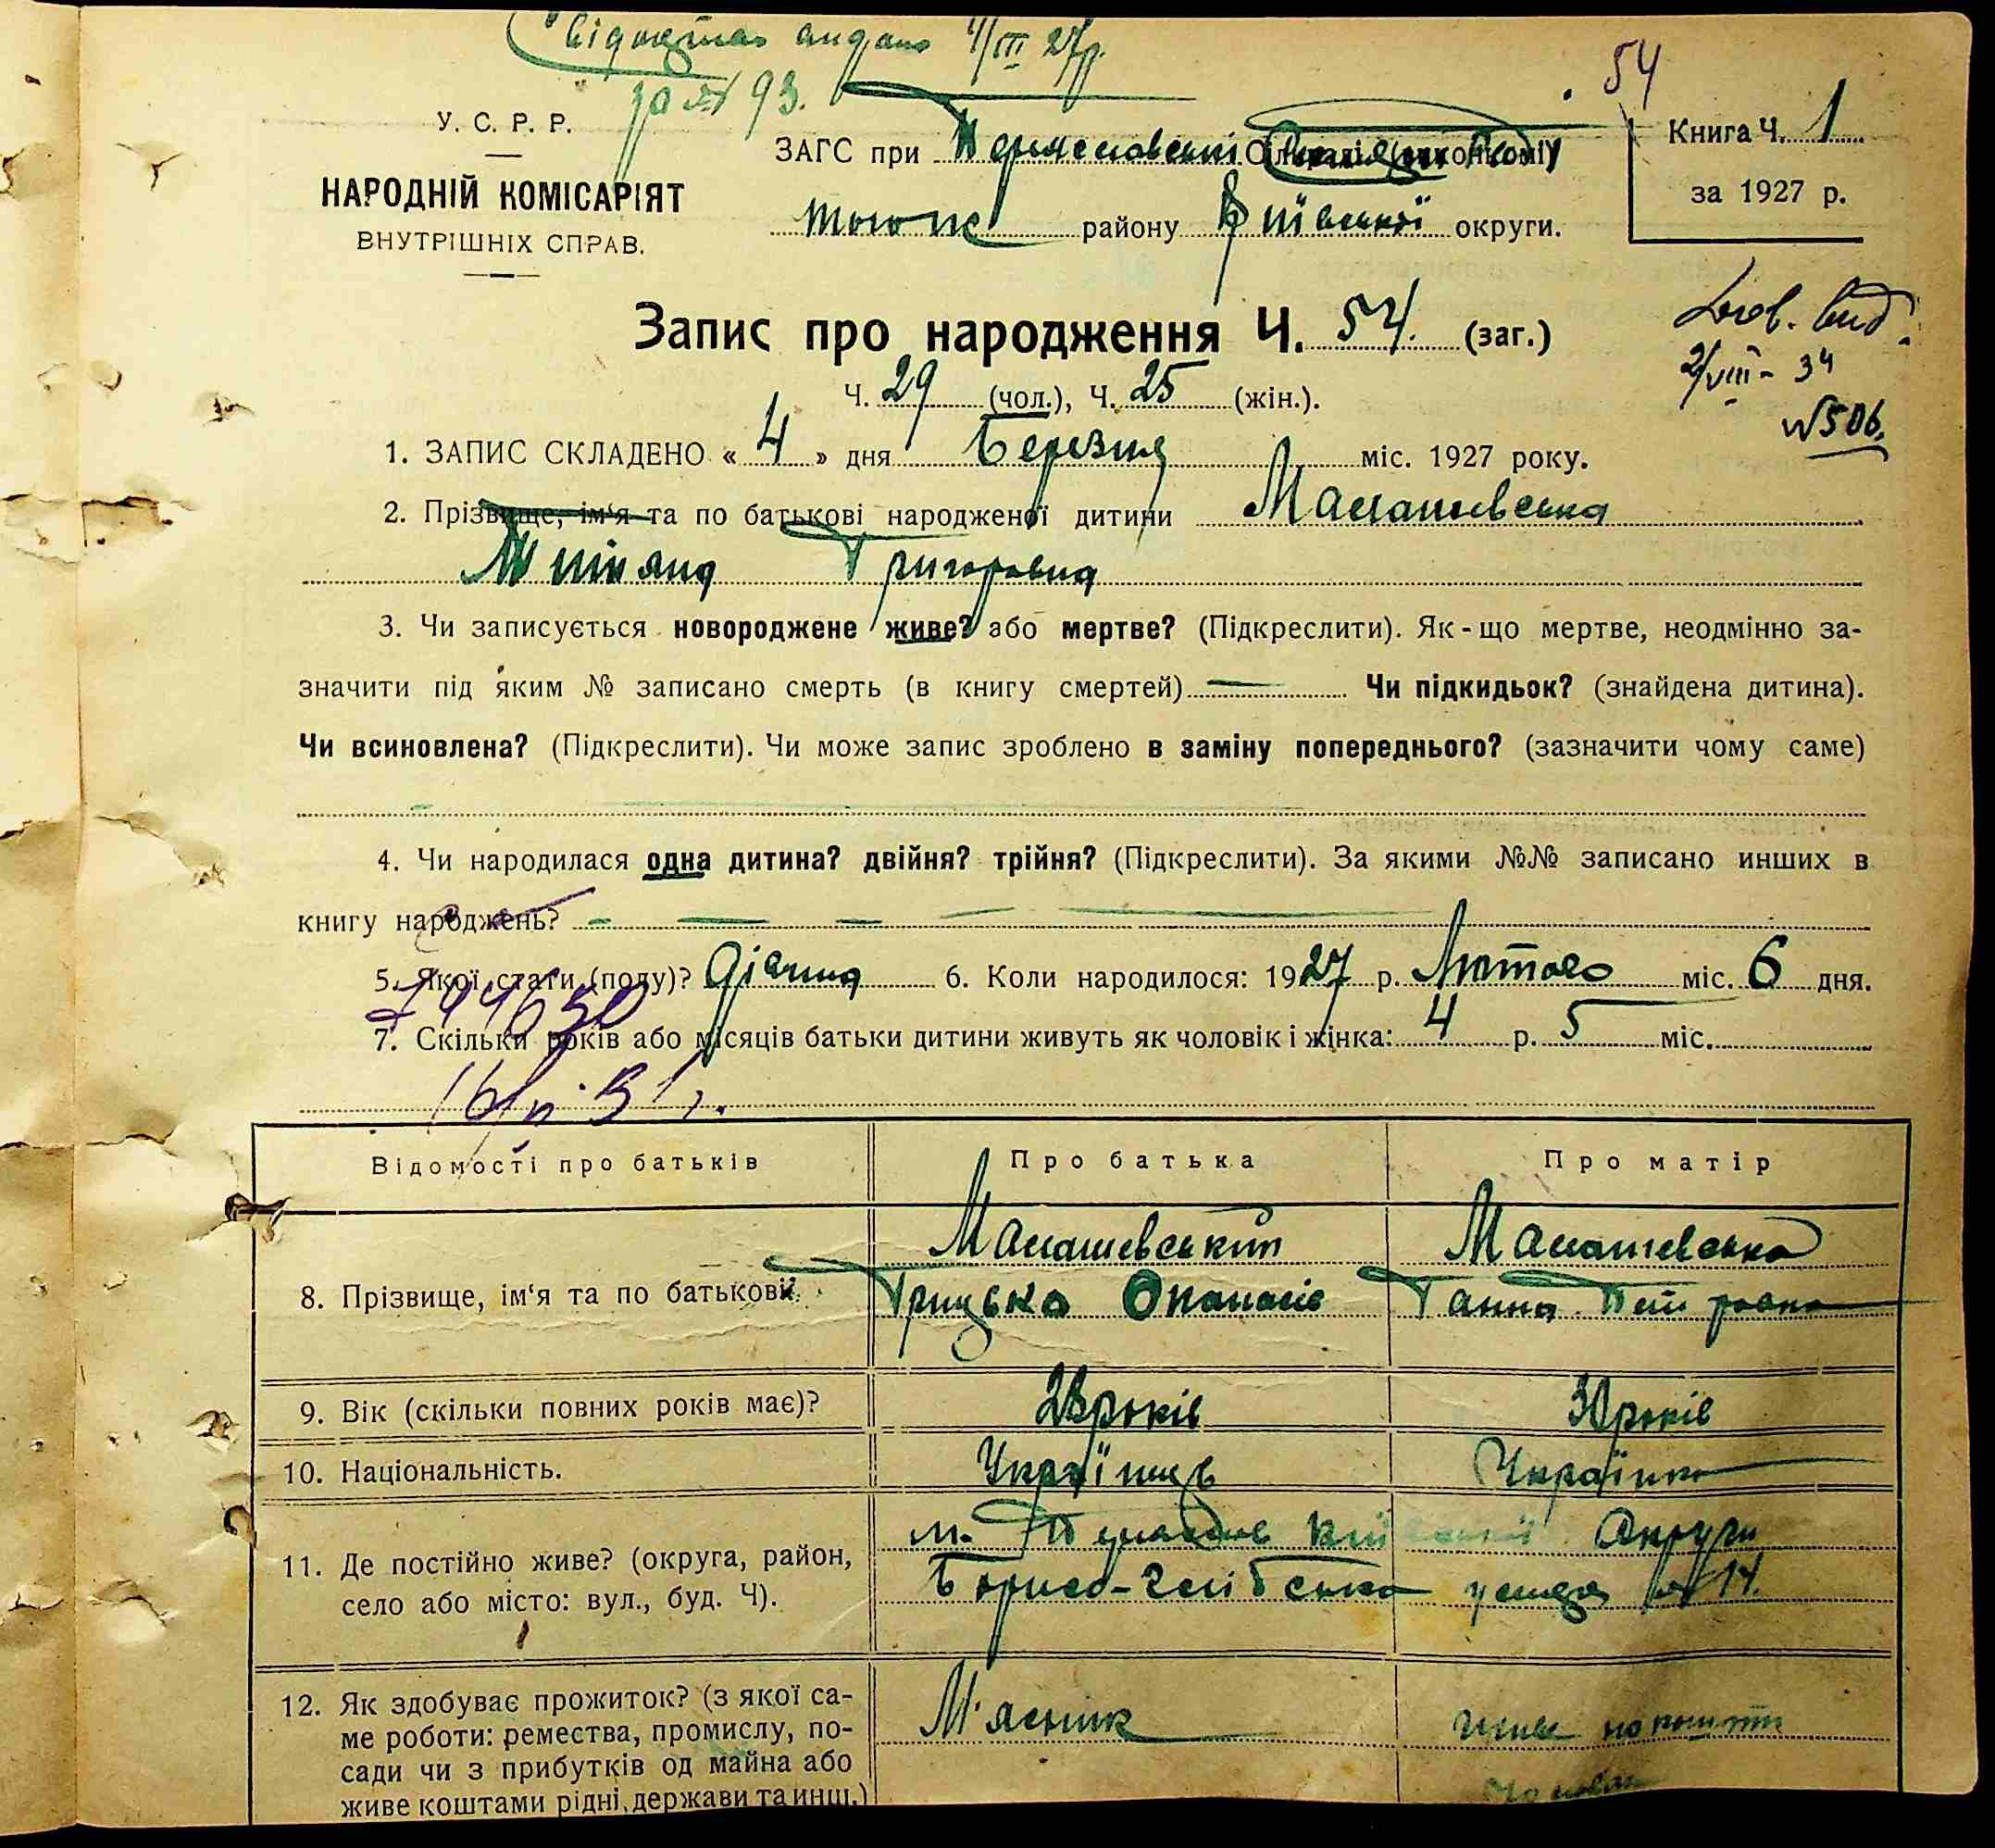 Свідоцтво видано 4/III 27р.
за № 93.
54
У. С. Р. Р.
НАРОДНІЙ КОМІСАРІЯТ
ВНУТРІШНІХ СПРАВ.
ЗАГС при Переяславській
того ж району Київської округи.
Книга Ч. 1
за 1927 р.
Запис про народження Ч. 54. (заг.)
2/VIII - 34
№506.
Ч. 29 (чол.), Ч. 25 (жін.).
1. ЗАПИС СКЛАДЕНО « 4 » дня Березня міс. 1927 року.
2. Прізвище, ім‘я та по батькові народженої дитини Малашевська
Тетяна Григоровна
3. Чи записується новороджене живе? або мертве? (Підкреслити). Як-що мертве, неодмінно за-
значити під яким № записано смерть (в книгу смертей) — Чи підкидьок? (знайдена дитина).
Чи всиновлена? (Підкреслити). Чи може запис зроблено в заміну попереднього? (зазначити чому саме)
4. Чи народилася одна дитина? двійня? трійня? (Підкреслити). За якими №№ записано инших в
книгу народжень?
5. Якої стати (полу)? Дівчина 6. Коли народилося: 1927 р. Лютого міс. 6 дня.
7. Скільки років або місяців батьки дитини живуть як чоловік і жінка: 4 р. 5 міс.
Відомості про батьків Про батька Про матір
8. Прізвище, ім‘я та по батькові. Малашевський Малашевська
Грицько Опанасів Ганна Петровна
9. Вік (скільки повних років має)? 28 років 30 років
10. Національність. Українець Українка
11. Де постійно живе? (округа, район, село або місто: вул., буд. Ч). м. Переяслів Київської Округи
Борисо-Глібська улиця № 14.
12. Як здобуває прожиток? (з якої са- М'ясник живе на кошти
ме роботи: ремества, промислу, по-
сади чи з прибутків од майна або
живе коштами рідні, держави та инш.)